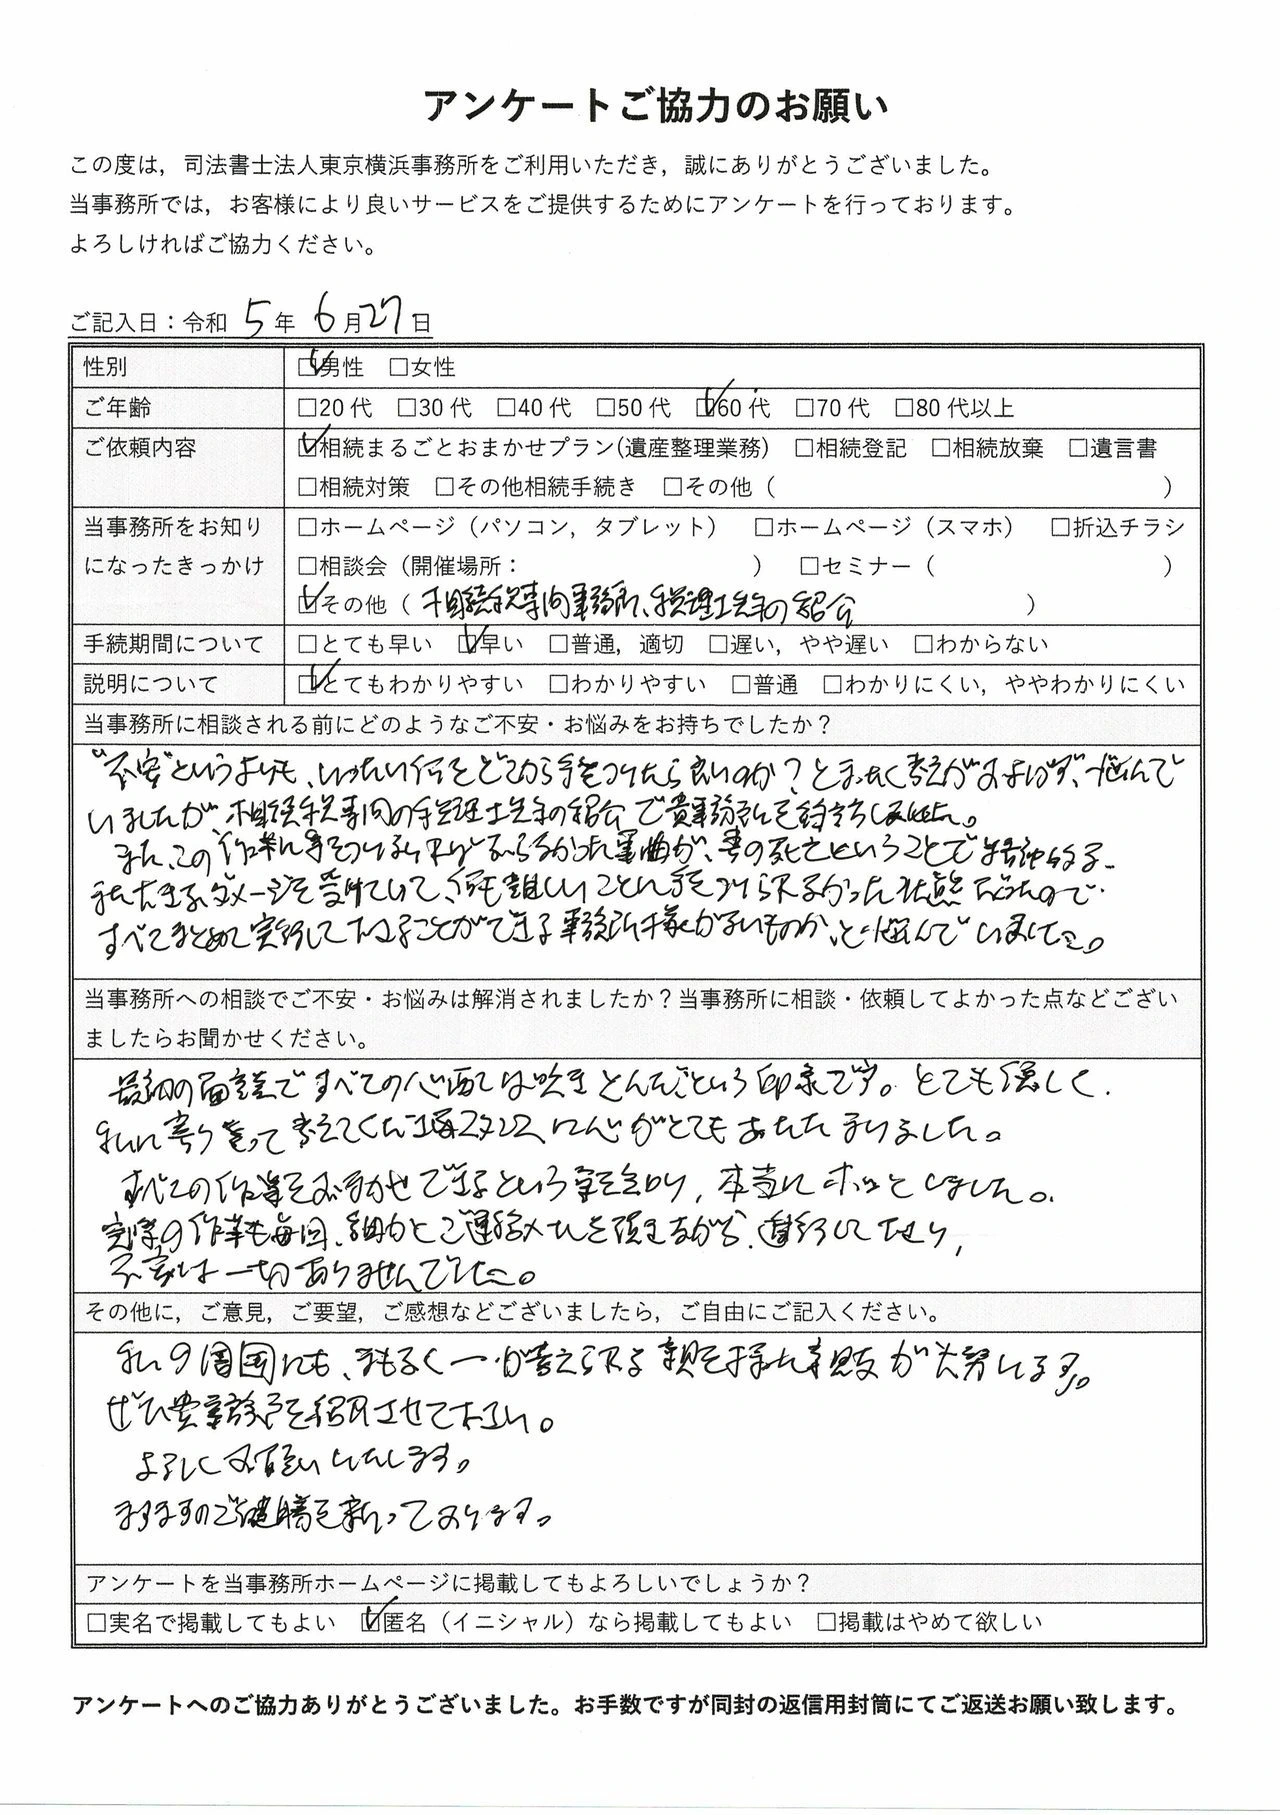 アンケートご協力のお願い
この度は，司法書士法人東京横浜事務所をご利用いただき，誠にありがとうございました。
当事務所では，お客様により良いサービスをご提供するためにアンケートを行っております。
よろしければご協力ください。
ご記入日：令和 5 年 6 月 27 日
性別 ☑男性 □女性
ご年齢 □20代 □30代 □40代 □50代 ☑60代 □70代 □80代以上
ご依頼内容 ☑相続まるごとおまかせプラン(遺産整理業務) □相続登記 □相続放棄 □遺言書
□相続対策 □その他相続手続き □その他（ ）
当事務所をお知り □ホームページ（パソコン，タブレット） □ホームページ（スマホ） □折込チラシ
になったきっかけ □相談会（開催場所： ） □セミナー（ ）
☑その他（ 相続税専門事務所、税理士先生の紹介 ）
手続期間について □とても早い ☑早い □普通，適切 □遅い，やや遅い □わからない
説明について ☑とてもわかりやすい □わかりやすい □普通 □わかりにくい，ややわかりにくい
当事務所に相談される前にどのようなご不安・お悩みをお持ちでしたか？
"不安"というよりも、いったい何をどこから手をつけたら良いのか？とまったく考えがおよばず、悩んで
いましたが、相続税専門の税理士先生の紹介で貴事務所を
また、この作業に手をつけ が、妻の死亡ということで
大きなダメージを受けていて、何も難しいことに手をつけられなかった状態だったので
すべてまとめて実行して下さることができる事務所様がないものか、と悩んでいました。
当事務所への相談でご不安・お悩みは解消されましたか？当事務所に相談・依頼してよかった点などござい
ましたらお聞かせください。
最初の面談ですべての心配は吹きとんだという印象です。とても優しく、
私に寄り添って考えてくださるスタンスに心がとてもあたたまりました。
すべての作業をお任せできるという事を知り、本当にホッとしました。
実際の作業も毎回、細かくご連絡メールを頂きながら、進行して下さり、
不安は一切ありませんでした。
その他に，ご意見，ご要望，ご感想などございましたら，ご自由にご記入ください。
私の周囲にも、まもなく万が一が考えられる親を持った親友が なる
ぜひ貴事務所を紹介させて下さい。
よろしくお願いいたします。
ますますのご健勝を祈っております。
アンケートを当事務所ホームページに掲載してもよろしいでしょうか？
□実名で掲載してもよい ☑匿名（イニシャル）なら掲載してもよい □掲載はやめて欲しい
アンケートへのご協力ありがとうございました。お手数ですが同封の返信用封筒にてご返送お願い致します。